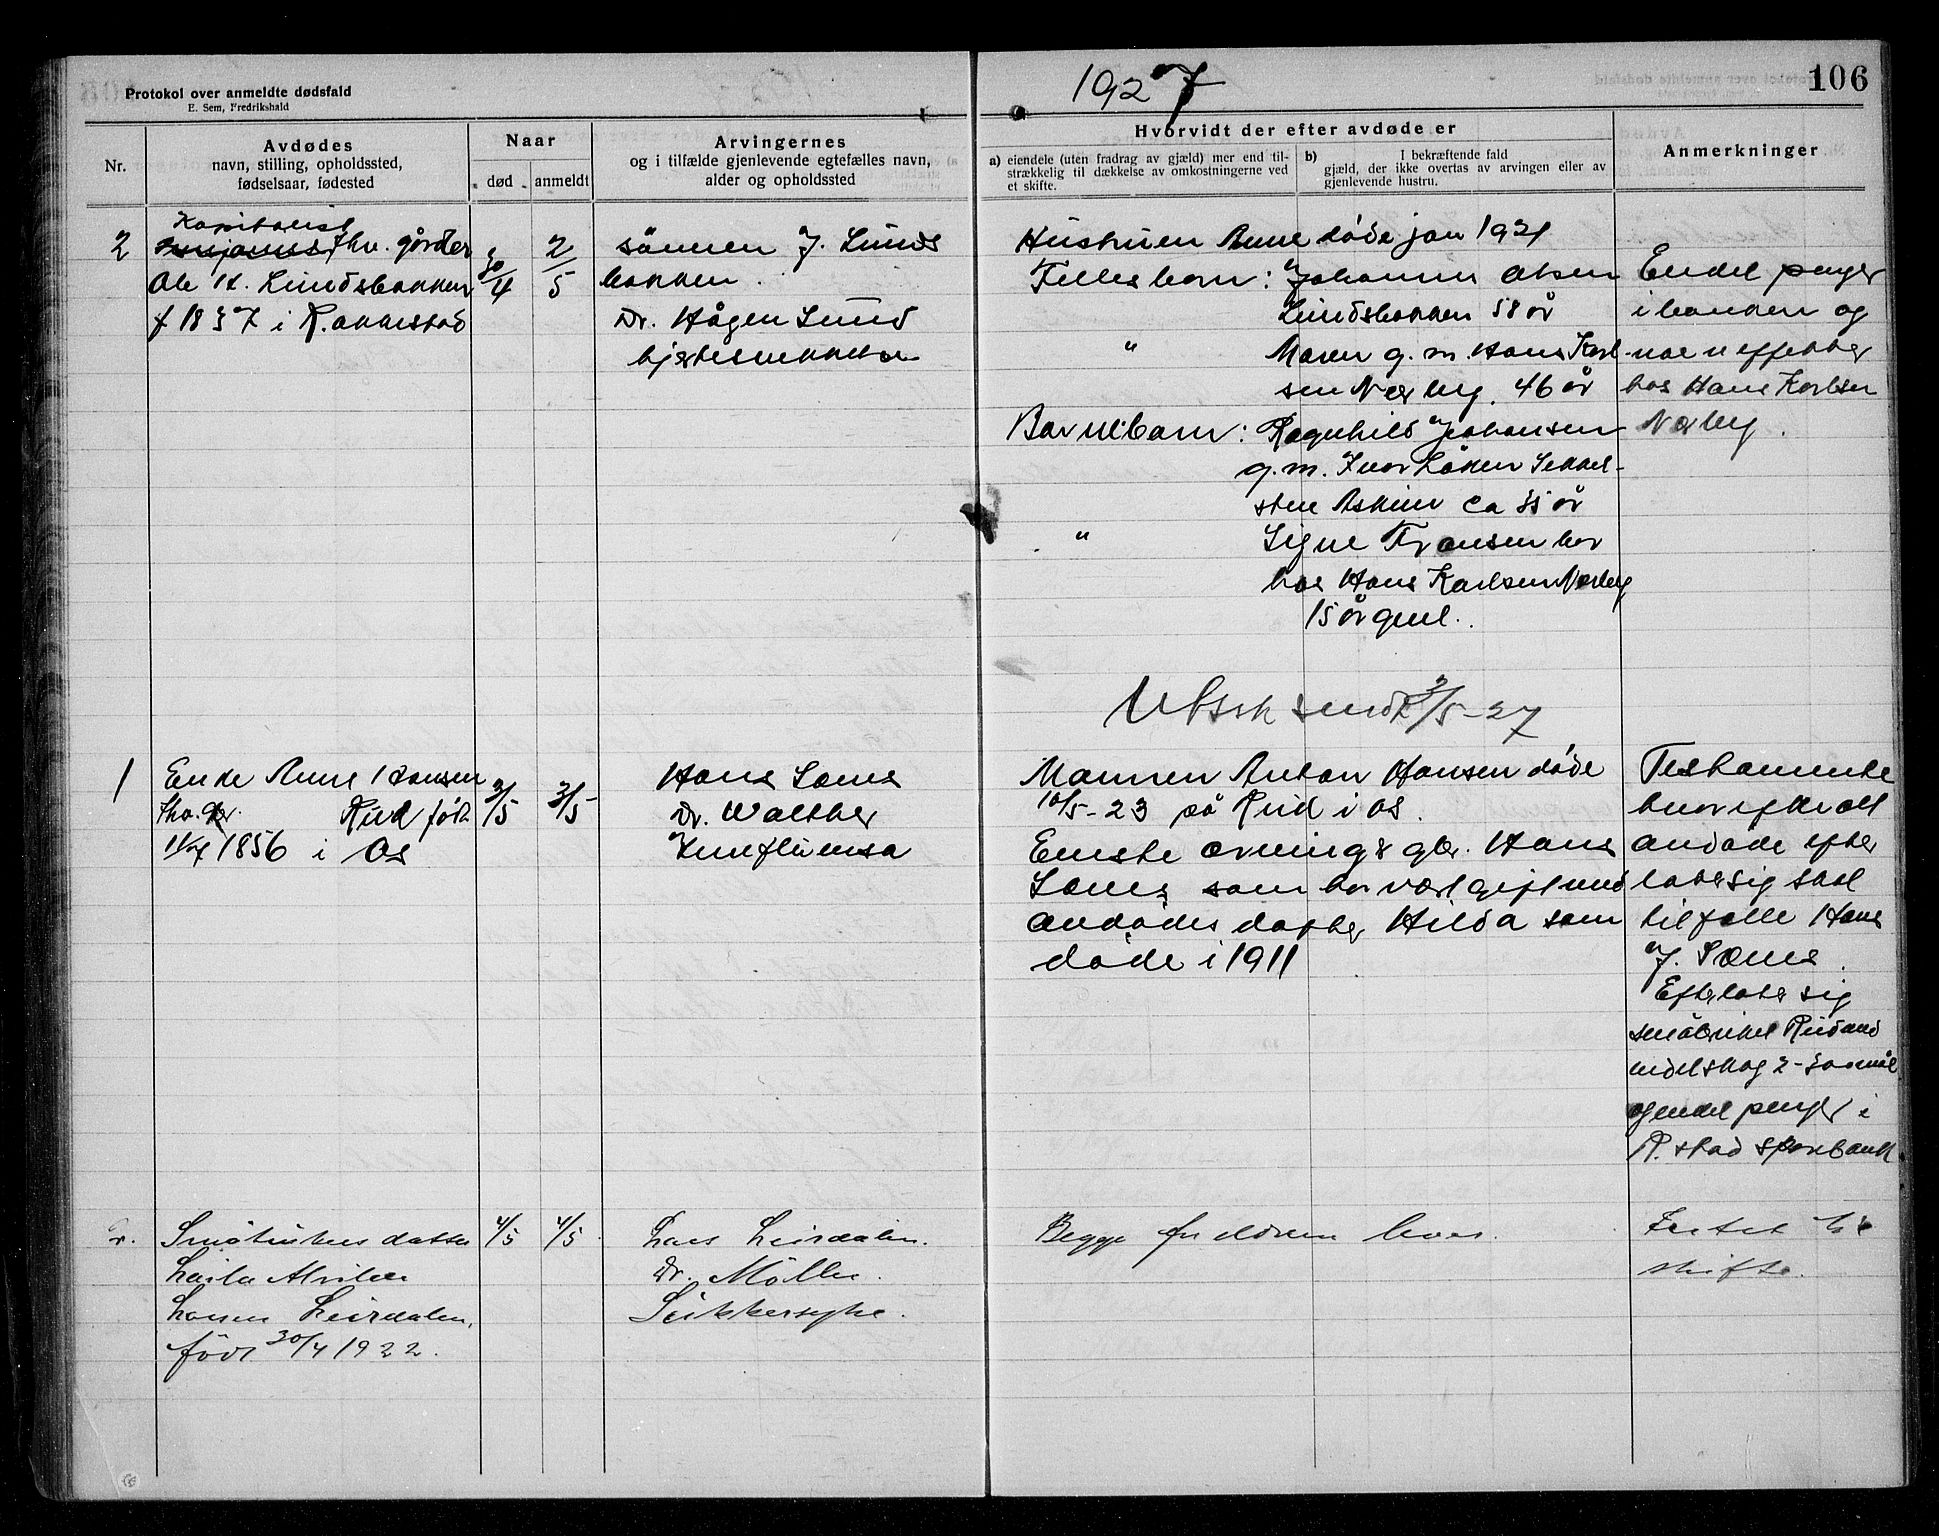 Protokol over anmeldte dødsfald
E. Sem, Fredrikshald
1927
106
Nr.
Avdødes
navn, stilling, opholdssted,
fødselsaar, fødested
Naar
død
anmeldt
Arvingernes
og i tilfælde gjenlevende egtefælles navn,
alder og opholdssted
Hvorvidt der efter avdøde er
a) eiendele (uten fradrag av gjæld) mer end til-
strækkelig til dækkelse av omkostningerne ved
et skifte.
b) I bekræftende fald
gjæld, der ikke overtas av arvingen eller av
gjenlevende hustru.
Anmerkninger
2
Kapitalist
fhv. gårdbr
Ole H. Lundsbakken
f 1837 i R.akkestad
30/4
2/5
sönnen J. Lunds
bakken.
Dr. Hågen Lund
hjertesvekkelse
Hustruen Anne døde jan 1921
Fellesbarn: Johannes Olsen
Lundsbakken 58 år
" Maren g.m. Hans Karl-
sen Nærby. 46 år
Barnebarn: Ragnhild Johansen
g.m. Ivar Löken Sekkel-
sten Askim ca 35 år
" Signe Fransen bor
hos Hans Karlsen Nærby
15 år gml.
Endel penger
i banken og
noen effekter
hos Hans Karlsen
Nærby.
Utskr sendt 3/5-27
1
Enke Anne Hansen
Rud født
1856 i Os
3/5
3/5
Hans Sæves
Dr. Walther
Influensa
Mannen Anton Hansen døde
10/5-23 på Rud i Os.
Eneste arving er gbr. Hans
Sæves som har vært gift med
avdødes datter Hilda som
døde i 1911
Testamente
hvorefter alt
avdøde efter
later sig skal
tilfalle Hans
J. Sæves.
Efterlater sig
småbruket Rud med
endel skog 2-300 mål
og endel penger i
R.stad Sparebank
Småbrukers datter
Laila Alvilde
Larsen Leirdalen,
født 30/4 1922.
4/5
4/5
Lars Leirdalen.
Dr. Möller.
Sukkersyke.
Begge foreldrene lever.
Intet til
skifte.